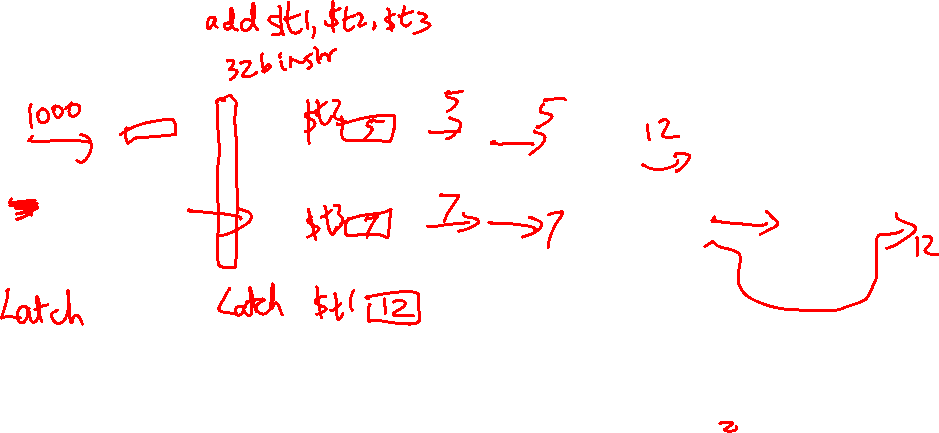 add $t1, $t2, $t3
32b instr
1000
$t2 5 5 5
12
$t3 7 7 7
12
Latch Latch $t1 12
2